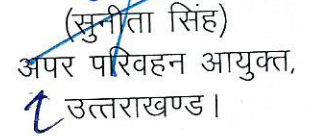 (सुनीता सिंह)
अपर परिवहन आयुक्त,
उत्तराखण्ड।